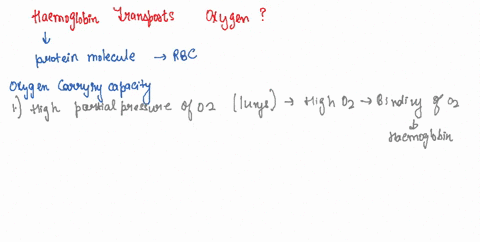 Haemoglobin Transposts Oxygen ?
↓
protein molecule → RBC
Oxygen Carryry capacity
1.) High partial pressure of O2 (lungs) → High O2 → Binding of O2
↓
Haemoglobin